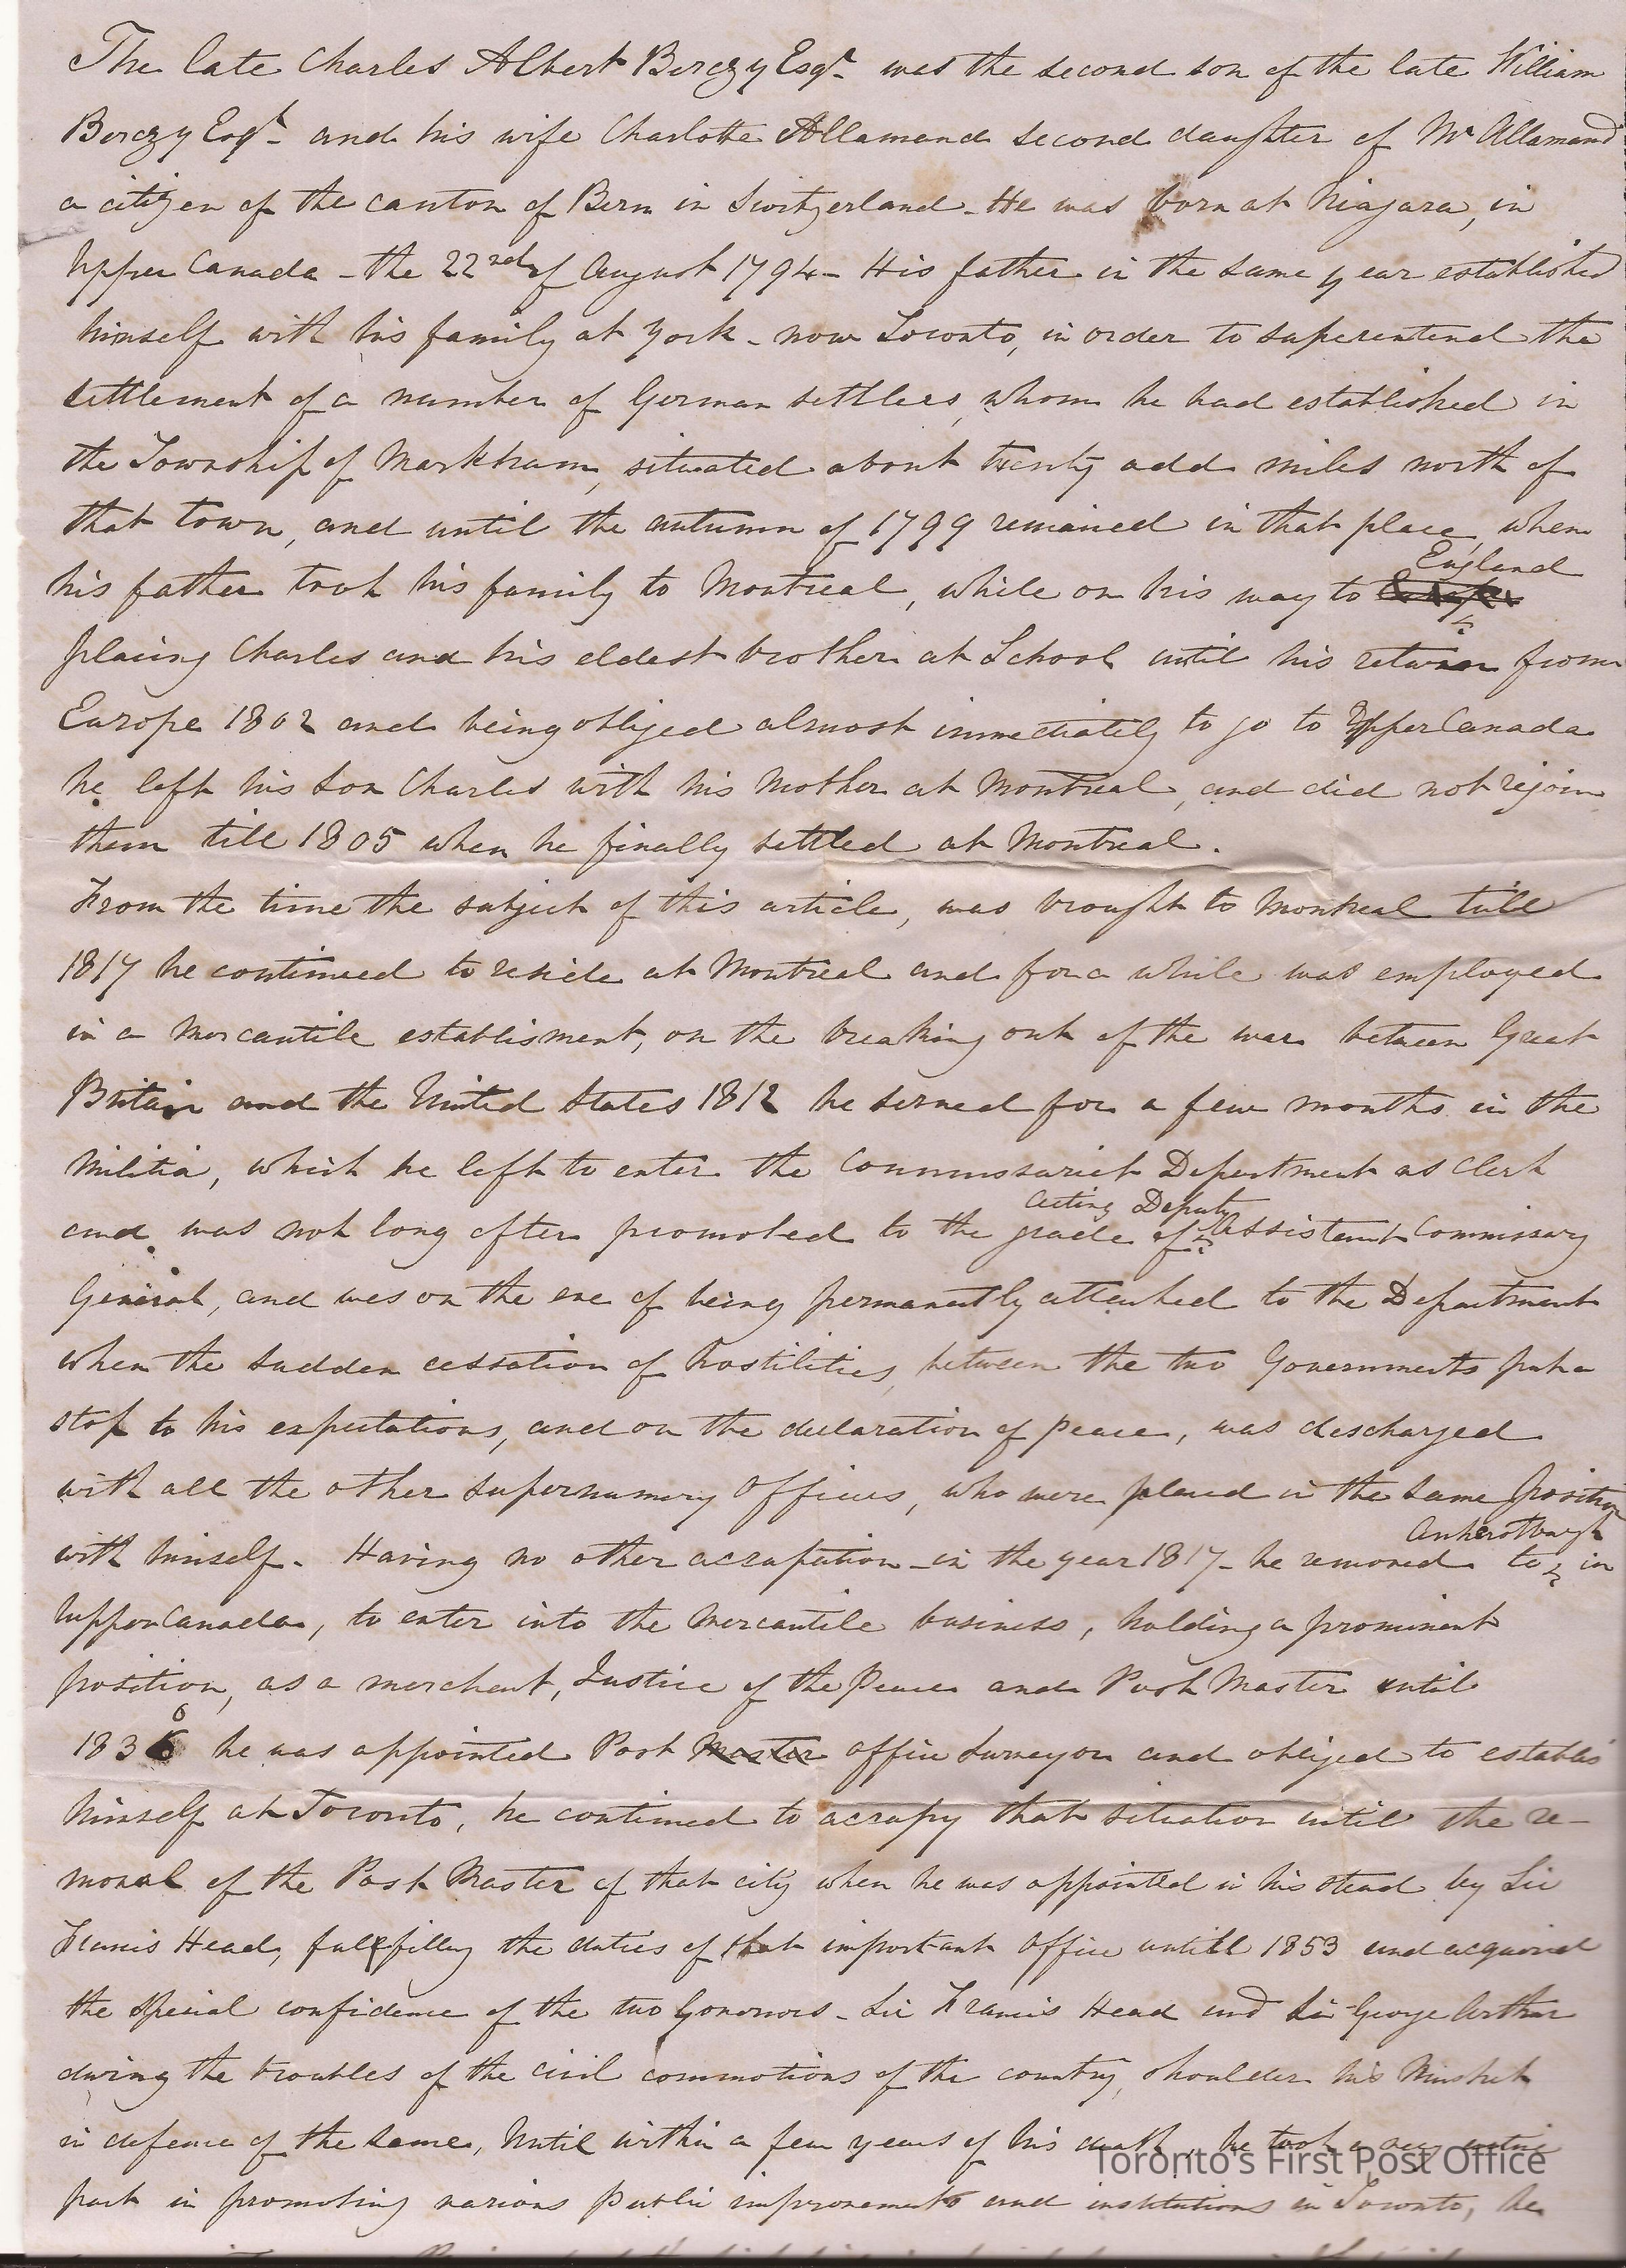 The late Charles Albert Berczy Esqr. was the second son of the late William
Berczy Esqr. and his wife Charlotte Allamand second daughter of Mr Allamand
a citizen of the canton of Bern in Switzerland. He was born at Niagara, in
Upper Canada - the 22nd of August 1794 - His father in the same year established
himself with his family at York - now Toronto, in order to superentend the
settlement of a number of German settlers, whom he had established in
the Township of Markham, situated about twenty add miles north of
that town, and until the autumn of 1799 remained in that place, when
England
his father took his family to Montreal, while on his way to
placing Charles and his eldest brother at School until his return from
Europe 1802 and being obliged almost immediately to go to Upper Canada
he left his son Charles with his Mother at Montreal, and did not rejoin
them till 1805 when he finally settled at Montreal.
From the time the subject of this article, was brought to Montreal till
1817 he continued to reside at Montreal and for a while was employed
in a Mercantile establisment, on the breaking out of the war between Great
Britain and the United States 1812 he served for a few months in the
Militia, which he left to enter the Commissariet Department as Clerk
acting Deputy
and was not long after promoted to the grade of Assistant Commissary
General, and was on the eve of being permanently attached to the Department
when the sudden cessation of hostilities, between the two Governments put a
stop to his expectations, and on the declaration of peace, was descharged
with all the other supernumery Officers, who were placed in the same position
Amherstburgh
with himself. Having no other accupation - in the year 1817 - he removed to in
Upper Canada, to enter into the Mercantile business, holding a prominent
position, as a merchant, Justice of the Peace and Post Master until
8
183 he was appointed Post Master office Surveyor and obliged to establis
himself at Toronto, he continued to accupy that situation until the re-
moval of the Post Master of that city when he was appointed in his stead by Sir
Francis Head, fullfilling the duties of that important office untill 1853 and acquired
the special confidence of the two Governors - Sir Francis Head and Sir George Arthur
during the troubles of the civil commotions of the country, shoulder his Musket
in defence of the same, Until within a few years of his death, he took a very active
Toronto's First Post Office
part in promoting various public improvements and institutions in Toronto, he